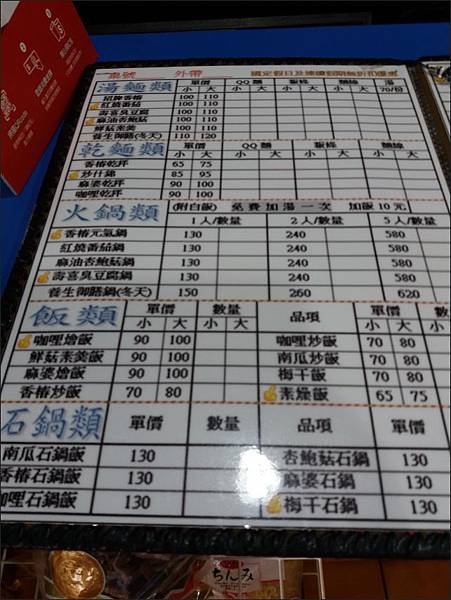 桌號 外帶 國定假日及連續假期無折扣優惠
湯麵類 單價 QQ麵 粄條 麵線 湯
小 大 小 大 小 大 小 大 70/份
招牌香椿 100 110
紅燒番茄 100 110
壽喜臭豆腐 100 110
麻油杏鮑菇 100 110
鮮菇素羹 100 110
養生御膳(冬天) 110 120
乾麵類 單價 QQ麵 粄條 麵線
小 大 小 大 小 大 小 大
香椿乾拌 65 75
炒什錦 85 95
麻婆乾拌 90 100
咖哩乾拌 90 100
火鍋類 (附白飯) 免費加湯一次 加飯10元
1人/數量 2人/數量 5人/數量
香椿元氣鍋 130 240 580
紅燒番茄鍋 130 240 580
麻油杏鮑菇鍋 130 240 580
壽喜臭豆腐鍋 130 240 580
養生御膳鍋(冬天) 150 260 620
飯類 單價 數量 品項 單價 數
小 大 小 大 小 大 小
咖哩燴飯 90 100 咖哩炒飯 70 80
鮮菇素羹飯 90 100 南瓜炒飯 70 80
麻婆燴飯 90 100 梅干飯 70 80
香椿炒飯 70 80 素燥飯 65 75
石鍋類 單價 數量 品項 單價
南瓜石鍋飯 130 杏鮑菇石鍋 130
香椿石鍋飯 130 麻婆石鍋 130
咖哩石鍋飯 130 梅干石鍋 130
ちんみ